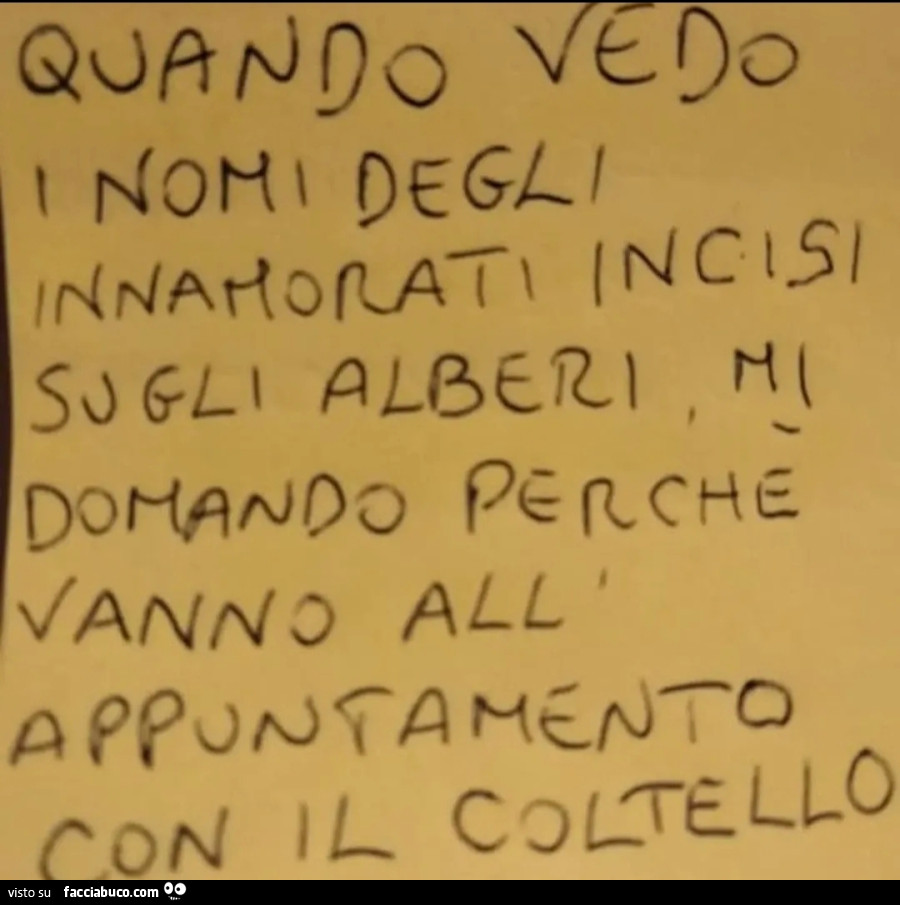 QUANDO VEDO
I NOMI DEGLI
INNAMORATI INCISI
SUGLI ALBERI, MI
DOMANDO PERCHÈ
VANNO ALL'
APPUNTAMENTO
CON IL COLTELLO
visto su facciabuco.com